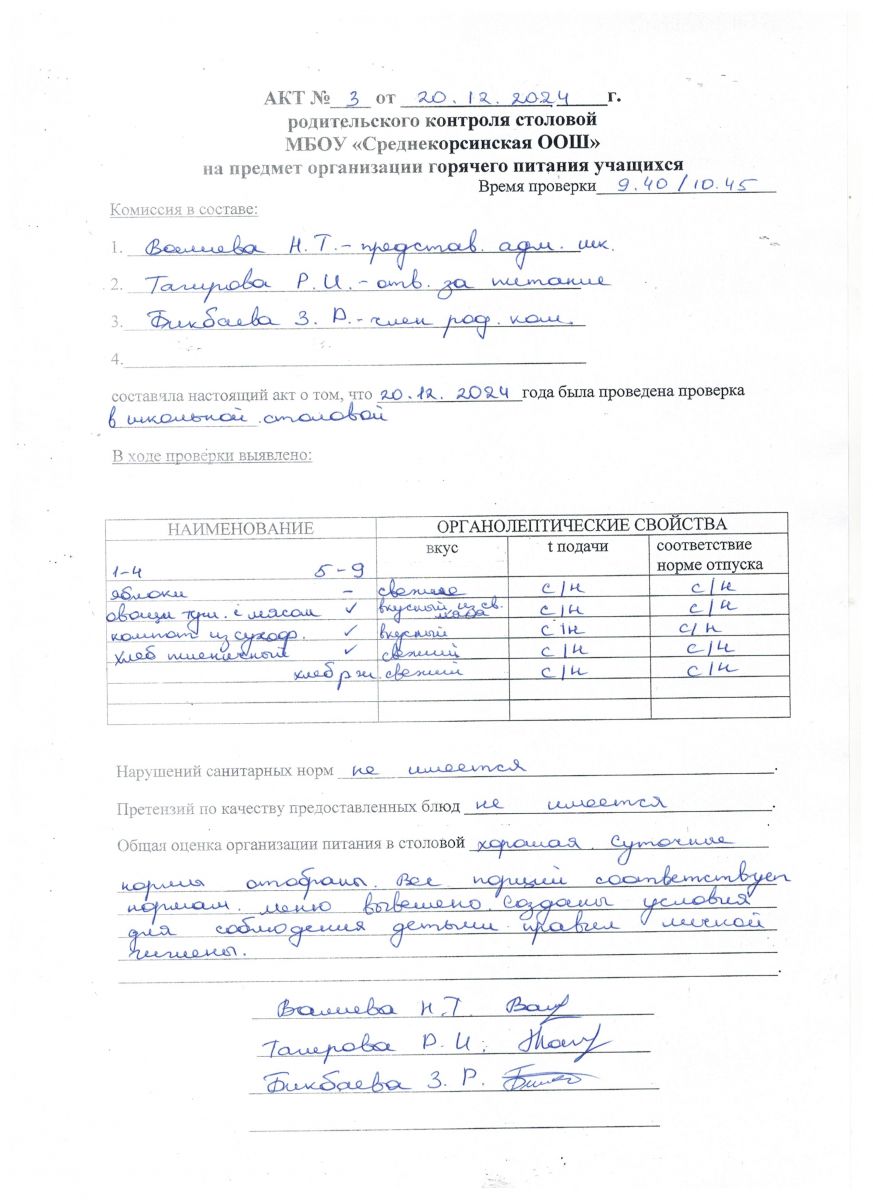 АКТ № 3 от 20.12.2024 г.
родительского контроля столовой
МБОУ «Среднекорсинская ООШ»
на предмет организации горячего питания учащихся
Время проверки 9.40 / 10.45
Комиссия в составе:
1. Валиева Н.Т. - представ. адм. шк.
2. Тагирова Р.И. - отв. за питание
3. Бикбаева З.Р. - член род. ком.
4.
составила настоящий акт о том, что 20.12.2024 года была проведена проверка
в школьной столовой
В ходе проверки выявлено:
НАИМЕНОВАНИЕ ОРГАНОЛЕПТИЧЕСКИЕ СВОЙСТВА
вкус t подачи соответствие
1-4 5-9 норме отпуска
яблоки – свежие с/н с/н
овощи туш. с мясом ✓ вкусный, из св. мяса с/н с/н
компот из сухоф. ✓ вкусный с/н с/н
хлеб пшеничный ✓ свежий с/н с/н
хлеб рж. свежий с/н с/н
Нарушений санитарных норм не имеется.
Претензий по качеству предоставленных блюд не имеется.
Общая оценка организации питания в столовой хорошая. Суточные
нормы отобраны. Все порции соответствует
нормам. меню вывешено. Созданы условия
для соблюдения детьми правил личной
гигиены.
Валиева Н.Т.
Тагирова Р.И.
Бикбаева З.Р.